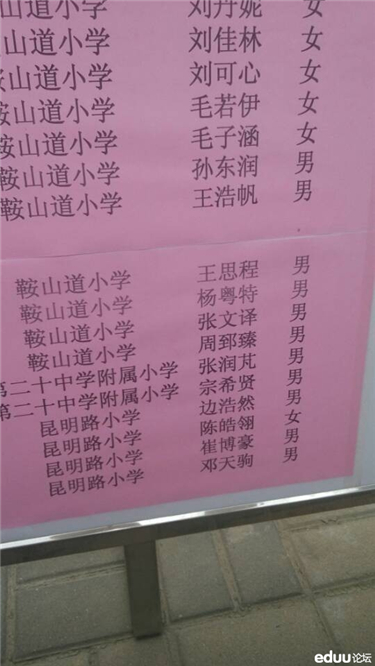 山道小学 刘丹妮 女
山道小学 刘佳林 女
鞍山道小学 刘可心 女
鞍山道小学 毛若伊 女
鞍山道小学 毛子涵 女
鞍山道小学 孙东润 男
鞍山道小学 王浩帆 男
鞍山道小学 王思程 男
鞍山道小学 杨粤特 男
鞍山道小学 张文译 男
鞍山道小学 周郅臻 男
第二十中学附属小学 张润芃 男
第二十中学附属小学 宗希贤 男
昆明路小学 边浩然 男
昆明路小学 陈皓翎 女
昆明路小学 崔博豪 男
昆明路小学 邓天驹 男
eduu论坛